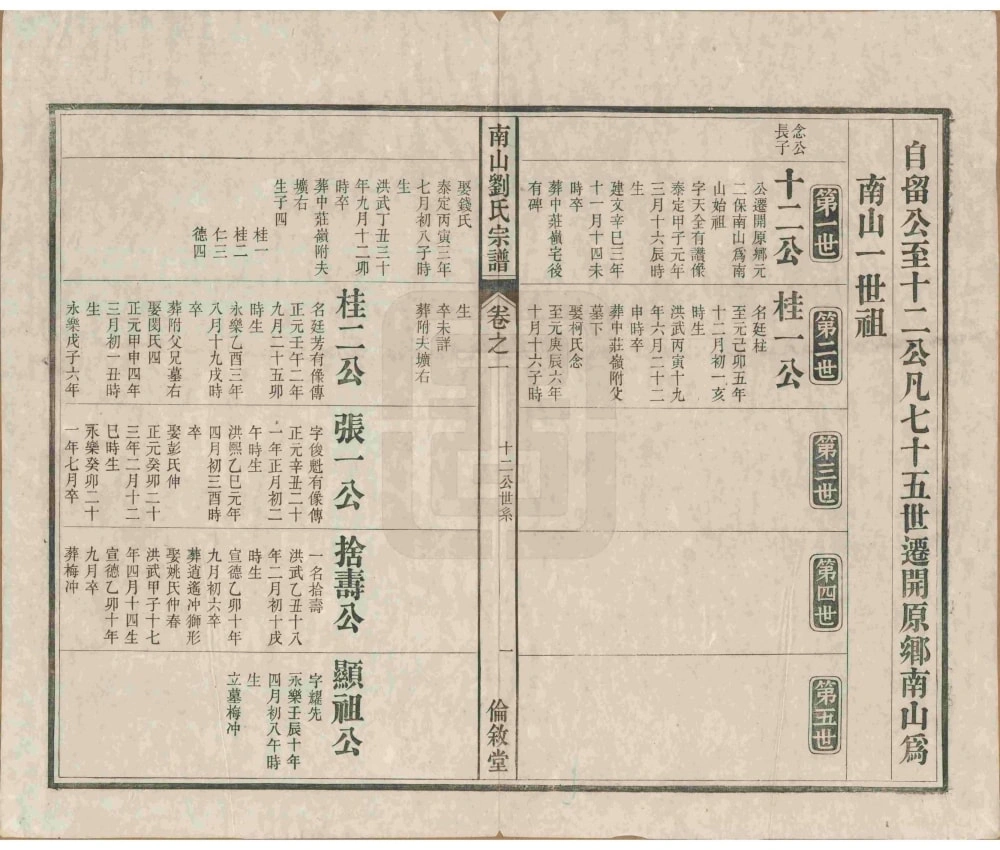 自留公至十二公凡七十五世遷開原鄉南山爲
南山一世祖
第一世
第二世
第三世
第四世
第五世
念公
長子
十二公
公遷開原鄉元
二保南山爲南
山始祖
字天全有讚像
泰定甲子元年
三月十六辰時
生
建文辛巳三年
十一月十四未
時卒
葬中莊嶺宅後
有碑
桂一公
名廷柱
至元己卯五年
十二月初一亥
時生
洪武丙寅十九
年六月二十二
申時卒
葬中莊嶺附父
墓下
娶柯氏念
至元庚辰六年
十月十六子時
南山劉氏宗譜
卷之一
十二公世系
一
倫敘堂
娶錢氏
泰定丙寅三年
七月初八子時
生
洪武丁丑三十
年九月十二卯
時卒
葬中莊嶺附夫
壙右
生子四
桂一
桂二
仁三
德四
生
卒未詳
葬附夫壙右
桂二公
名廷芳有像傳
正元壬午二年
九月二十五卯
時生
永樂乙酉三年
八月十九戌時
卒
葬附父兄墓右
娶閔氏四
正元甲申四年
三月初一丑時
生
永樂戊子六年
張一公
字俊魁有像傳
正元辛丑二十
一年正月初二
午時生
洪熙乙巳元年
四月初三酉時
卒
娶彭氏伸
正元癸卯二十
三年二月十二
巳時生
永樂癸卯二十
一年七月卒
捨壽公
一名拾壽
洪武乙丑十八
年二月初十戌
時生
宣德乙卯十年
九月初六卒
葬逍遙冲獅形
娶姚氏仲春
洪武甲子十七
年四月十四生
宣德乙卯十年
九月卒
葬梅冲
顯祖公
字耀先
永樂壬辰十年
四月初八午時
生
立墓梅冲